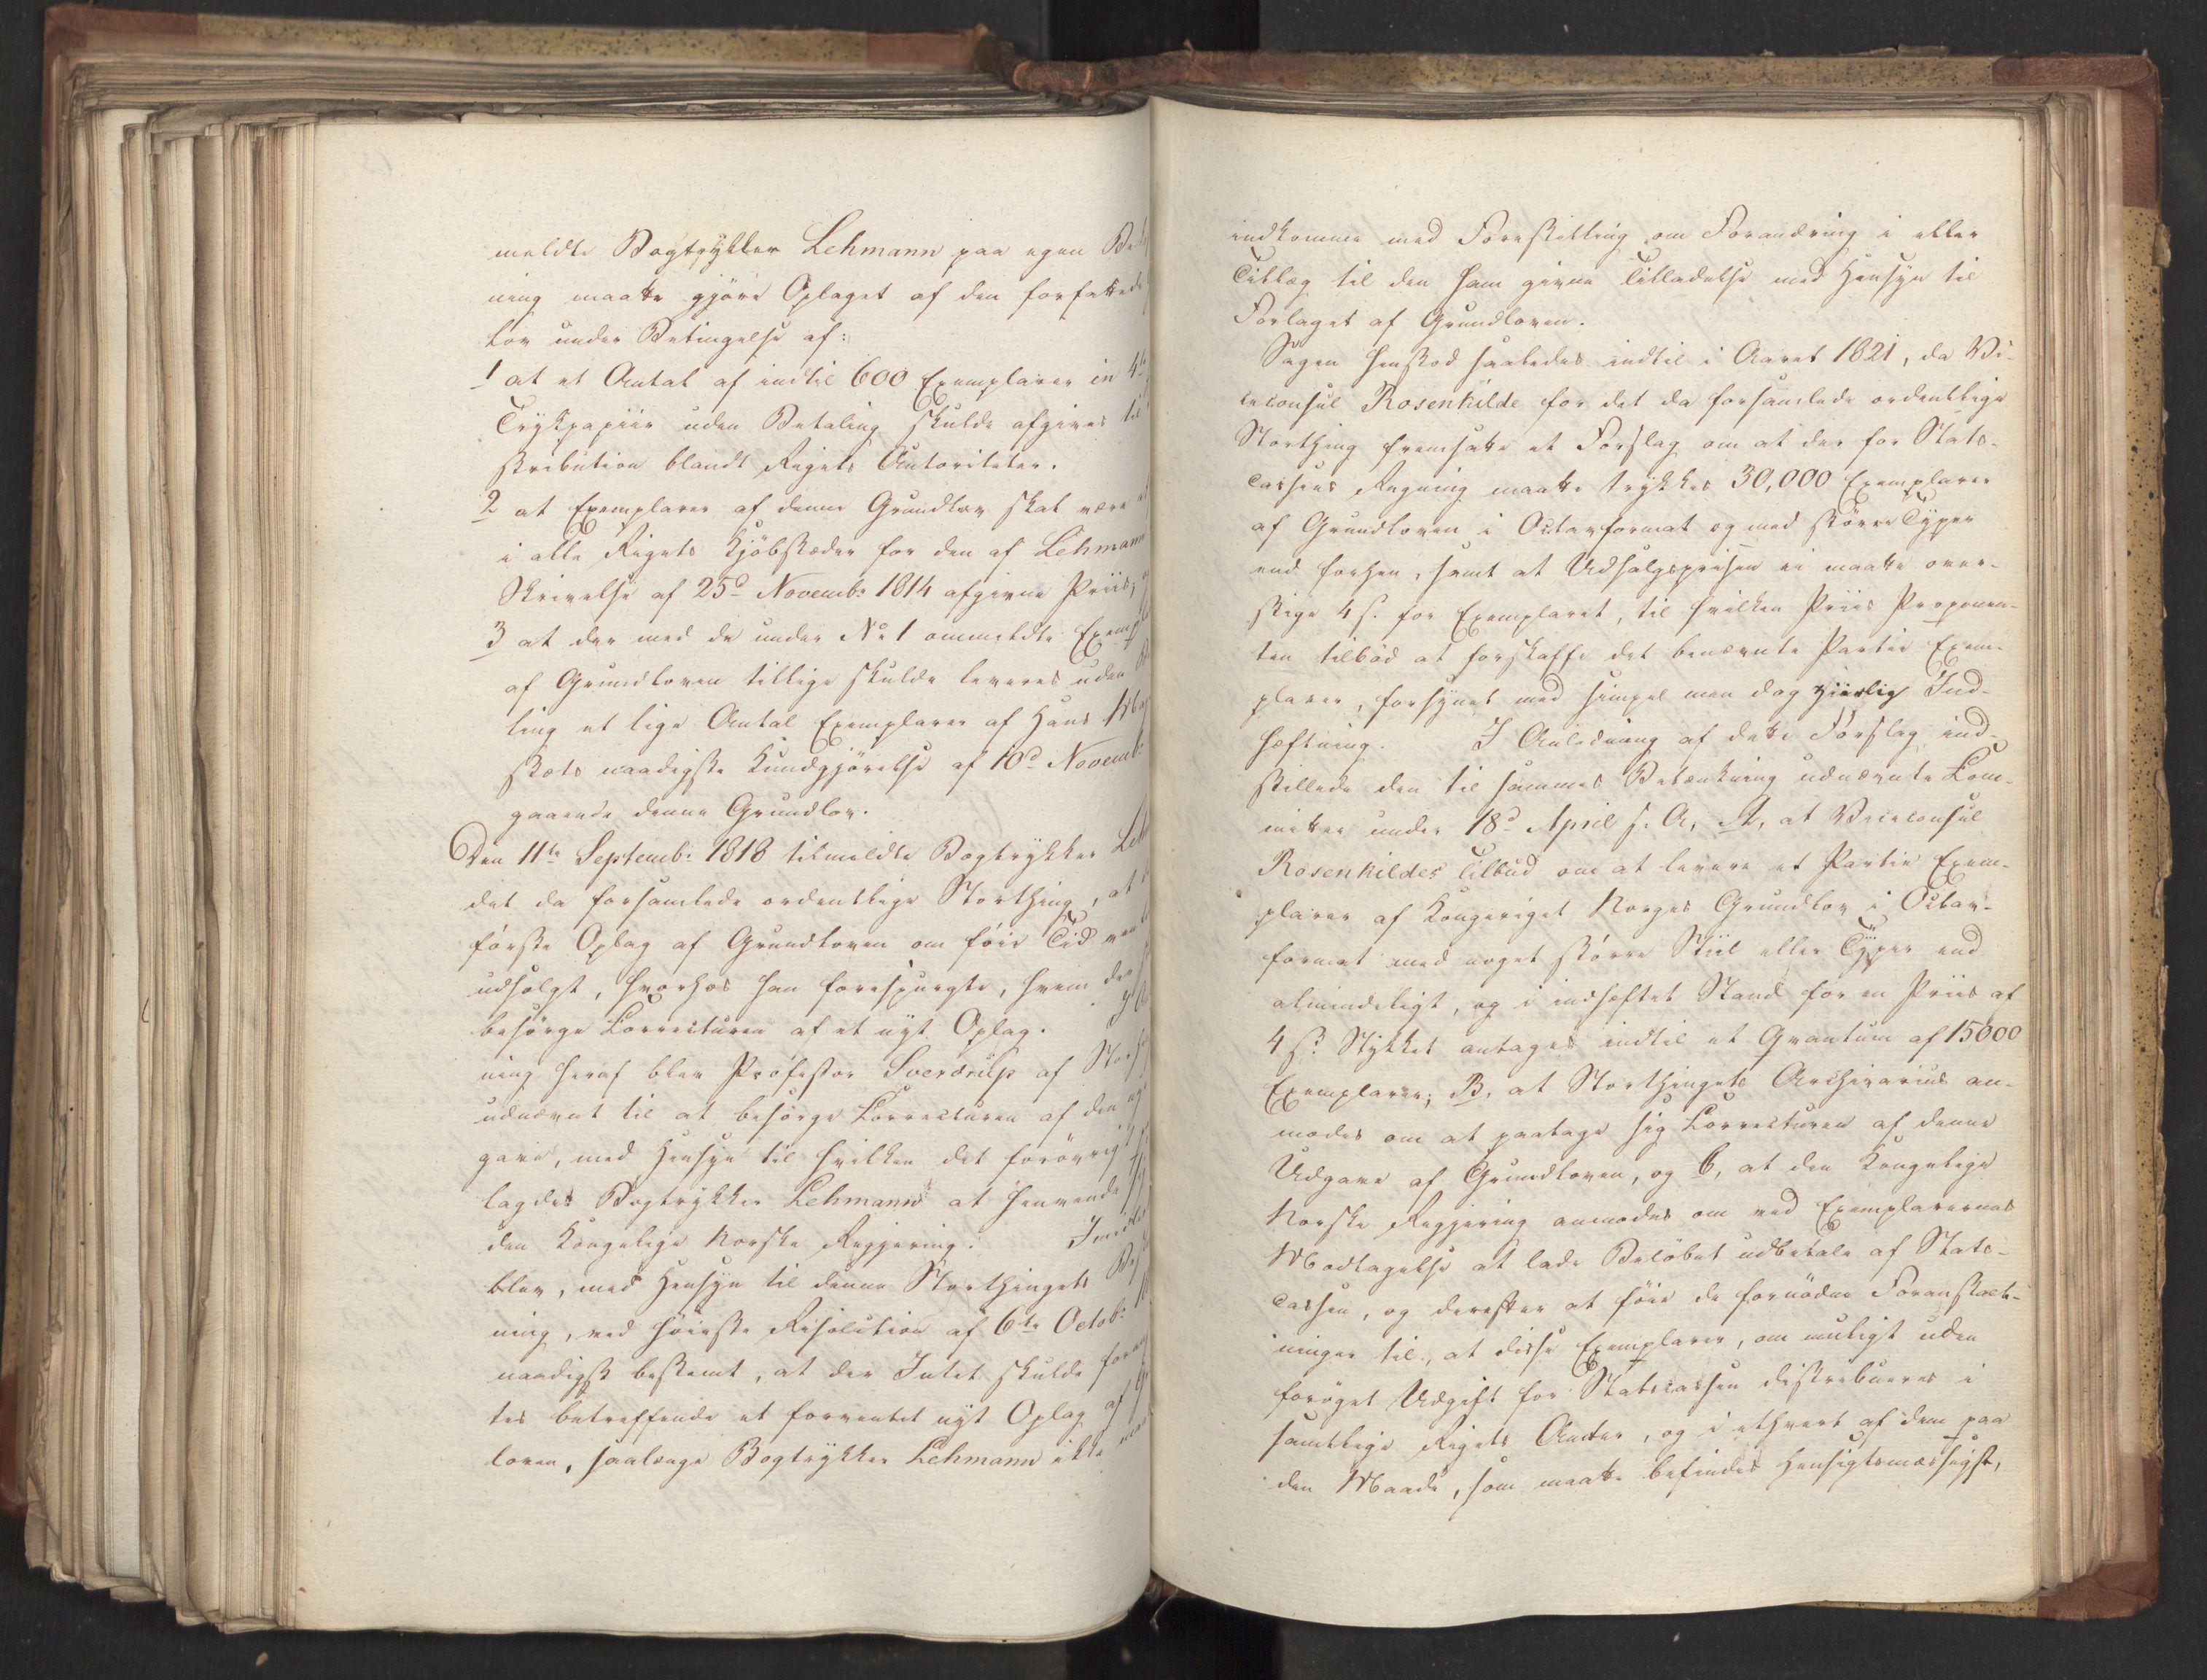 meldte Bogtrykker Lehmann paa egen
ning maatte gjøre Oplaget af den forfattede
lov under Betingelse af:
1 at et Antal af indtil 600 Exemplarer in 4to
Trykpapiir uden Betaling skulde afgives til
stribution blandt Rigets Autoriteter.
2 at Exemplarer af denne Grundlov skal være
i alle Rigets Kjøbstæder for den af Lehmann
Skrivelse af 25d Novemb: 1814 afgivne Priis,
3 at der med de under No 1 ommeldte Exemp
af Grundloven tillige skulde leveres uden
ling et lige Antal Exemplarer af Hans
stæts naadigste Kundgjørelse af 10d Novemb:
gaaende denne Grundlov.
Den 11te Septemb: 1818 tilmeldte Bogtrykker Leh
det da forsamlede ordentlige Storthing, at
første Oplag af Grundloven om føie Tid
udsolgt, hvorhos han forespurgte, hvem der
besørge Correcturen af et nyt Oplag.
ning heraf blev Professor Sverdrup af
udnævnt til at besørge Correcturen af den
gave, med Hensyn til hvilken det forøvrig
lagdes Bogtrykker Lehmann at henvende
den Kongelige Norske Regjering. Imid
blev, med Hensyn til denne Storthingets
ning, ved høieste Resolution af 6te Octob:
naadigst bestemt, at der Intet skulde
tes betreffende et forventet nyt Oplag af
loven, saalænge Bogtrykker Lehmann ikke
indkomme med Forestilling om Forandring i eller
Tillæg til den ham givne Tilladelse med Hensyn til
Forlaget af Grundloven.
Sagen henstod saaledes indtil i Aaret 1821, da Vi-
ceconsul Rosenkilde for det da forsamlede ordentlige
Storthing fremsatte et Forslag om at der for Stats-
cassens Regning maatte trykkes 30,000 Exemplarer
af Grundloven i Octavformat og med større Typer
end forhen, samt at Udsalgsprisen ei maatte over-
stige 4 s. for Exemplaret, til hvilken Priis Proponen-
ten tilbød at forskaffe det benævnte Partie Exem-
plarer, forsynet med simpel men dog ziirlig Ind-
hæftning. I Anledning af dette Forslag ind-
stillede den til sammes Betænkning udnævnte Com-
mittee under 18d April s. A, A, at Viceconsul
Rosenkildes Tilbud om at levere et Partie Exem-
plarer af Kongeriget Norges Grundlov i Octav-
format med noget større Stiil eller Typer end
almindeligt, og i indhæftet Stand for en Priis af
4 s. Stykket antages indtil et Qvantum af 15000
Exemplarer; B, at Storthingets Archivarius an-
modes om at paatage sig Correcturen af denne
Udgave af Grundloven, og C, at den Kongelige
Norske Regjering anmodes om ved Exemplarernes
Modtagelse at lade Beløbet udbetale af Stats-
cassen, og derefter at føie de fornødne Foranstalt-
ninger til, at disse Exemplarer, om muligt uden
forøget Udgift for Statscassen distribueres i
samtlige Rigets Amter, og i ethvert af dem paa
den Maade, som maatte befindes hensigtsmæssigst,